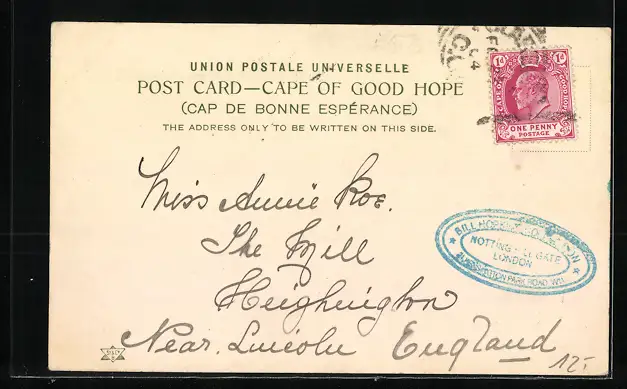 UNION POSTALE UNIVERSELLE
POST CARD—CAPE OF GOOD HOPE
(CAP DE BONNE ESPÉRANCE)
THE ADDRESS ONLY TO BE WRITTEN ON THIS SIDE.
1d 1d
CAPE OF GOOD HOPE
ONE PENNY
POSTAGE
Miss Annie Roe.
The Mill
Heighington
Near. Lincoln England
BILL
NOTTING HILL GATE
LONDON
PARK ROAD W11
12.-